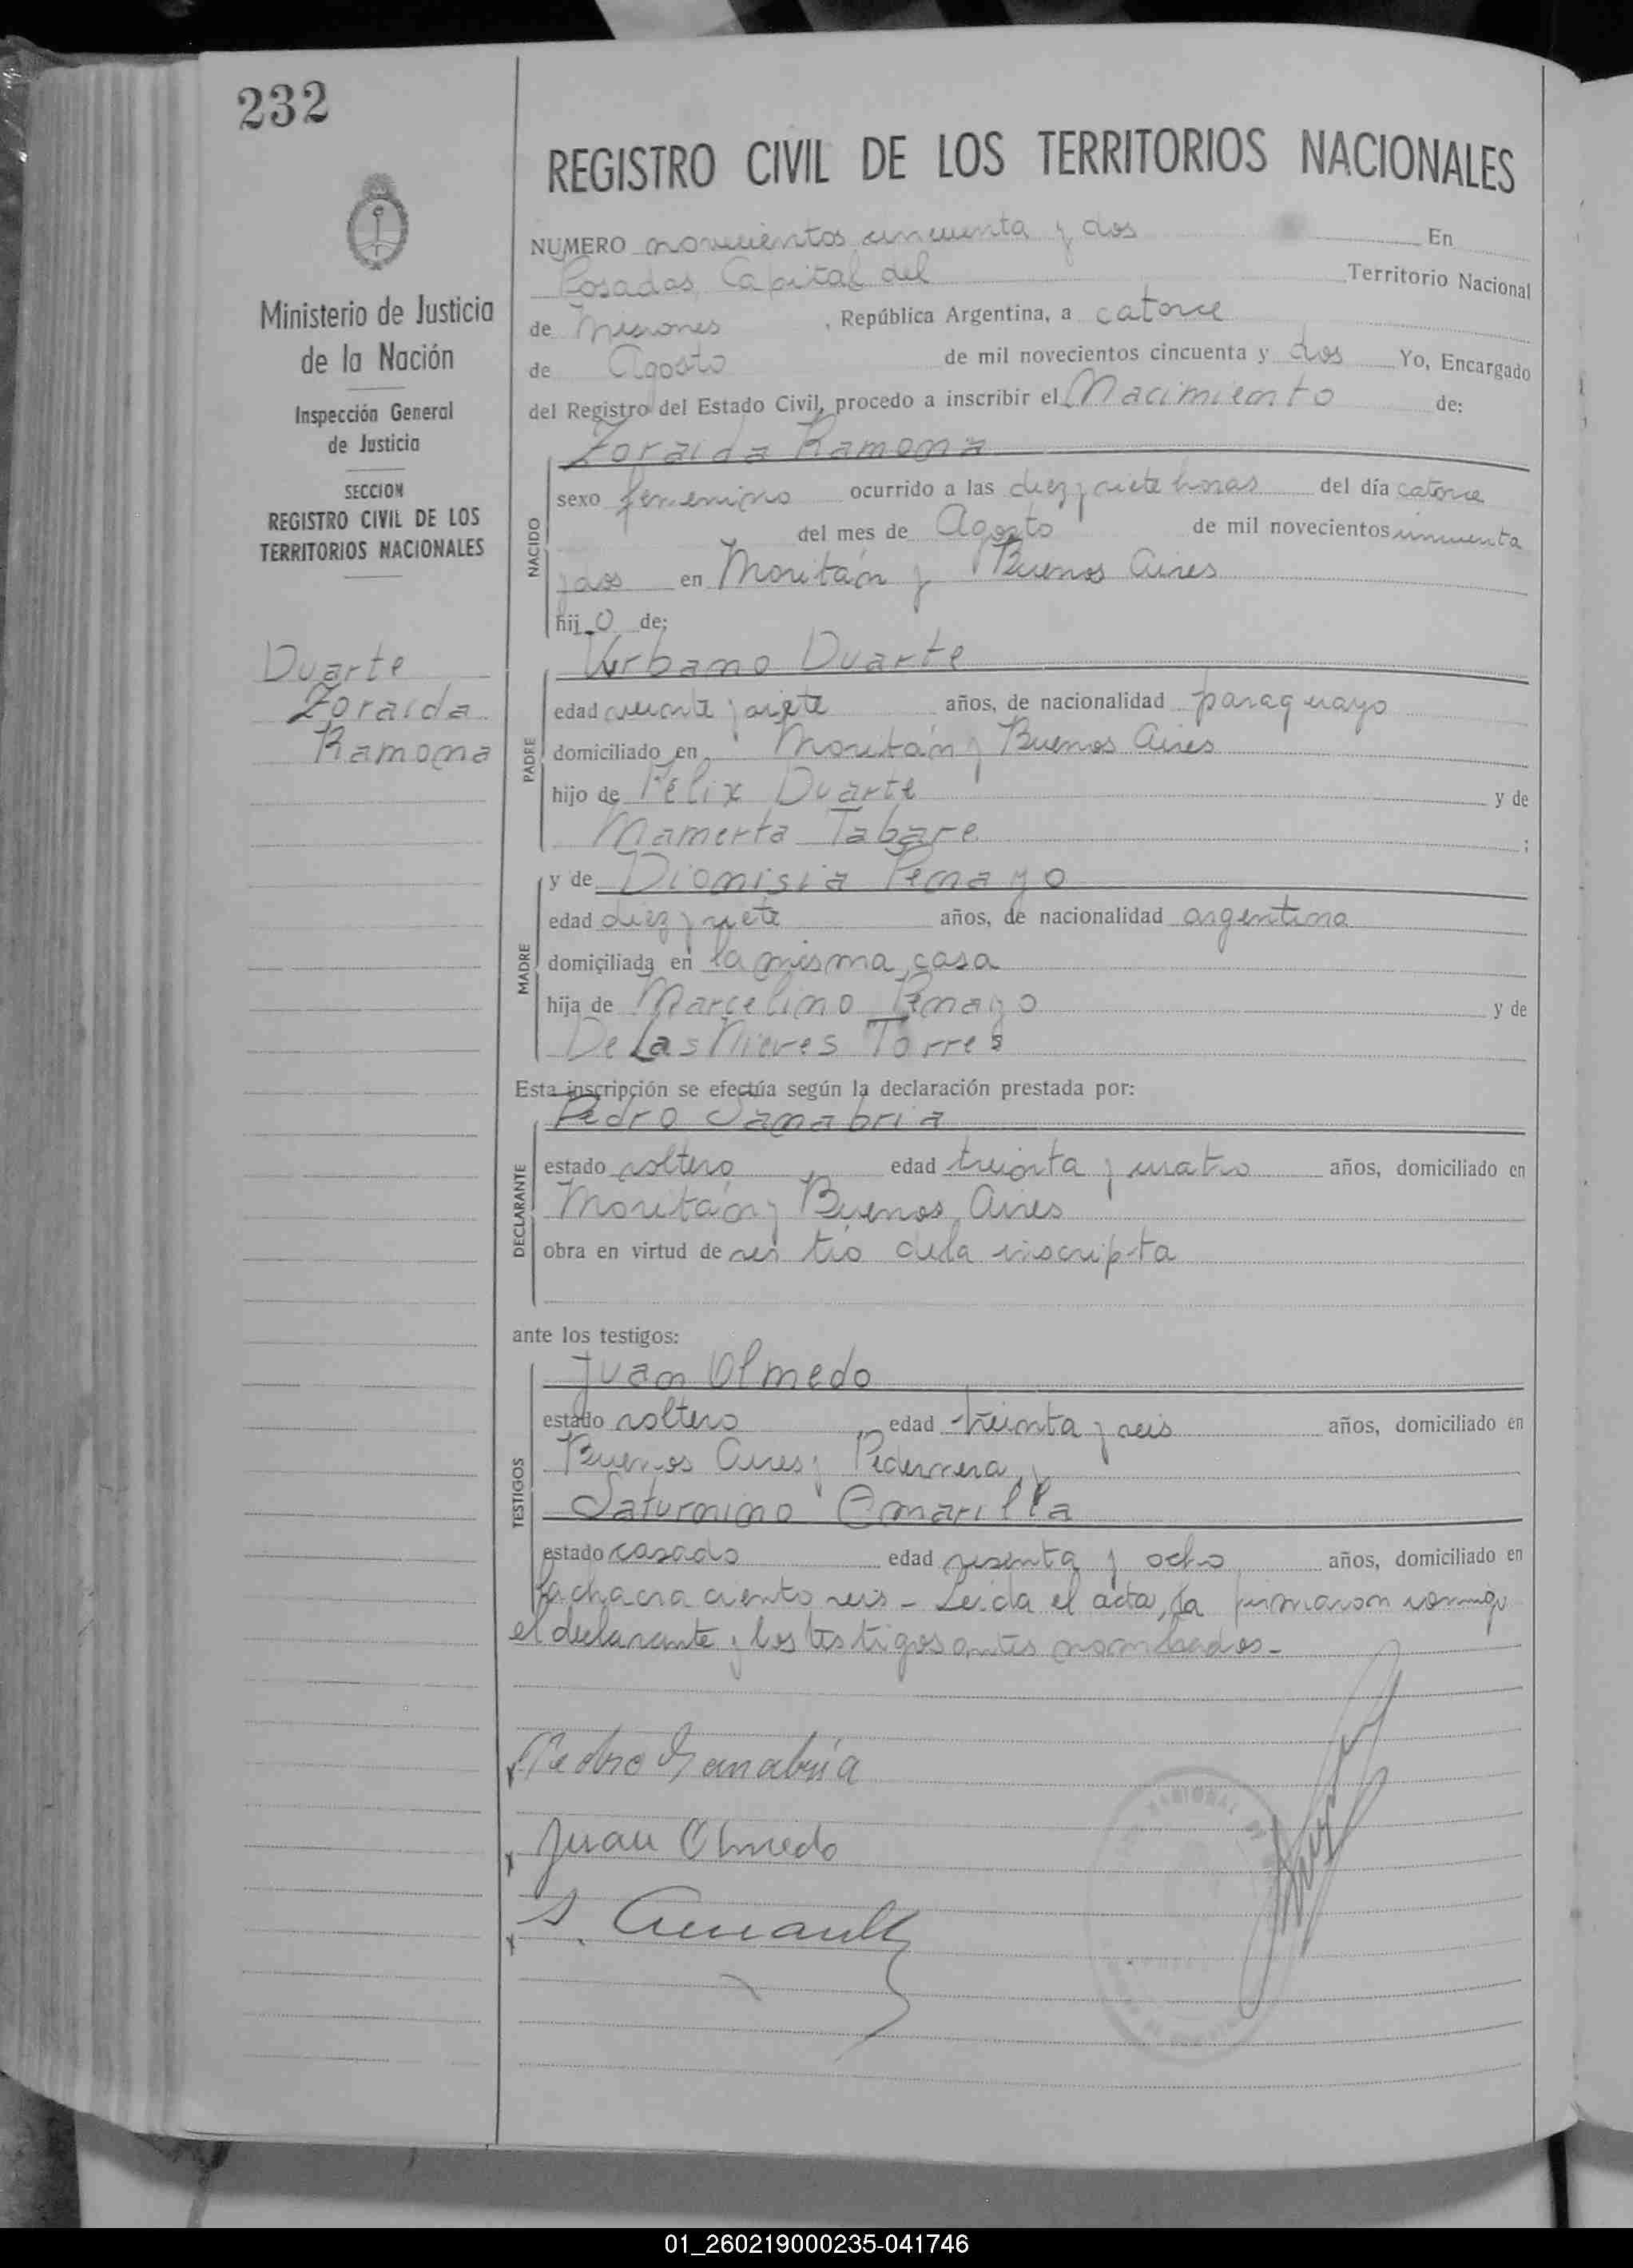 232
REGISTRO CIVIL DE LOS TERRITORIOS NACIONALES
Ministerio de Justicia
de la Nación
Inspección General
de Justicia
SECCION
REGISTRO CIVIL DE LOS
TERRITORIOS NACIONALES
Duarte
Zoraida
Ramona
NUMERO novecientos cincuenta y dos En
Posadas, Capital del Territorio Nacional
de Misiones, República Argentina, a catorce
de Agosto de mil novecientos cincuenta y dos Yo, Encargado
del Registro del Estado Civil, procedo a inscribir el Nacimiento de:
Zoraida Ramona
NACIDO
sexo femenino ocurrido a las diez y siete horas del día catorce
del mes de Agosto de mil novecientos cincuenta
y dos en Moritán y Buenos Aires
hij o de:
Urbano Duarte
PADRE
edad veinte y siete años, de nacionalidad paraguayo
domiciliado en Moritán y Buenos Aires
hijo de Félix Duarte y de
Mamerta Tabare ;
MADRE
y de Dionisia Penayo
edad diez y siete años, de nacionalidad argentina
domiciliada en la misma casa
hija de Marcelino Penayo y de
De Las Nieves Torres
Esta inscripción se efectúa según la declaración prestada por:
Pedro Sanabria
DECLARANTE
estado soltero edad treinta y cuatro años, domiciliado en
Moritán y Buenos Aires
obra en virtud de ser tío de la inscripta
ante los testigos:
Juan Olmedo
TESTIGOS
estado soltero edad treinta y seis años, domiciliado en
Buenos Aires y Pedernera, y
Saturnino Amarilla
estado casado edad sesenta y ocho años, domiciliado en
la chacra ciento seis - Leída el acta, la firmaron conmigo
el declarante y los testigos antes nombrados -
Pedro Sanabria
Juan Olmedo
S. Amarilla
01_260219000235-041746